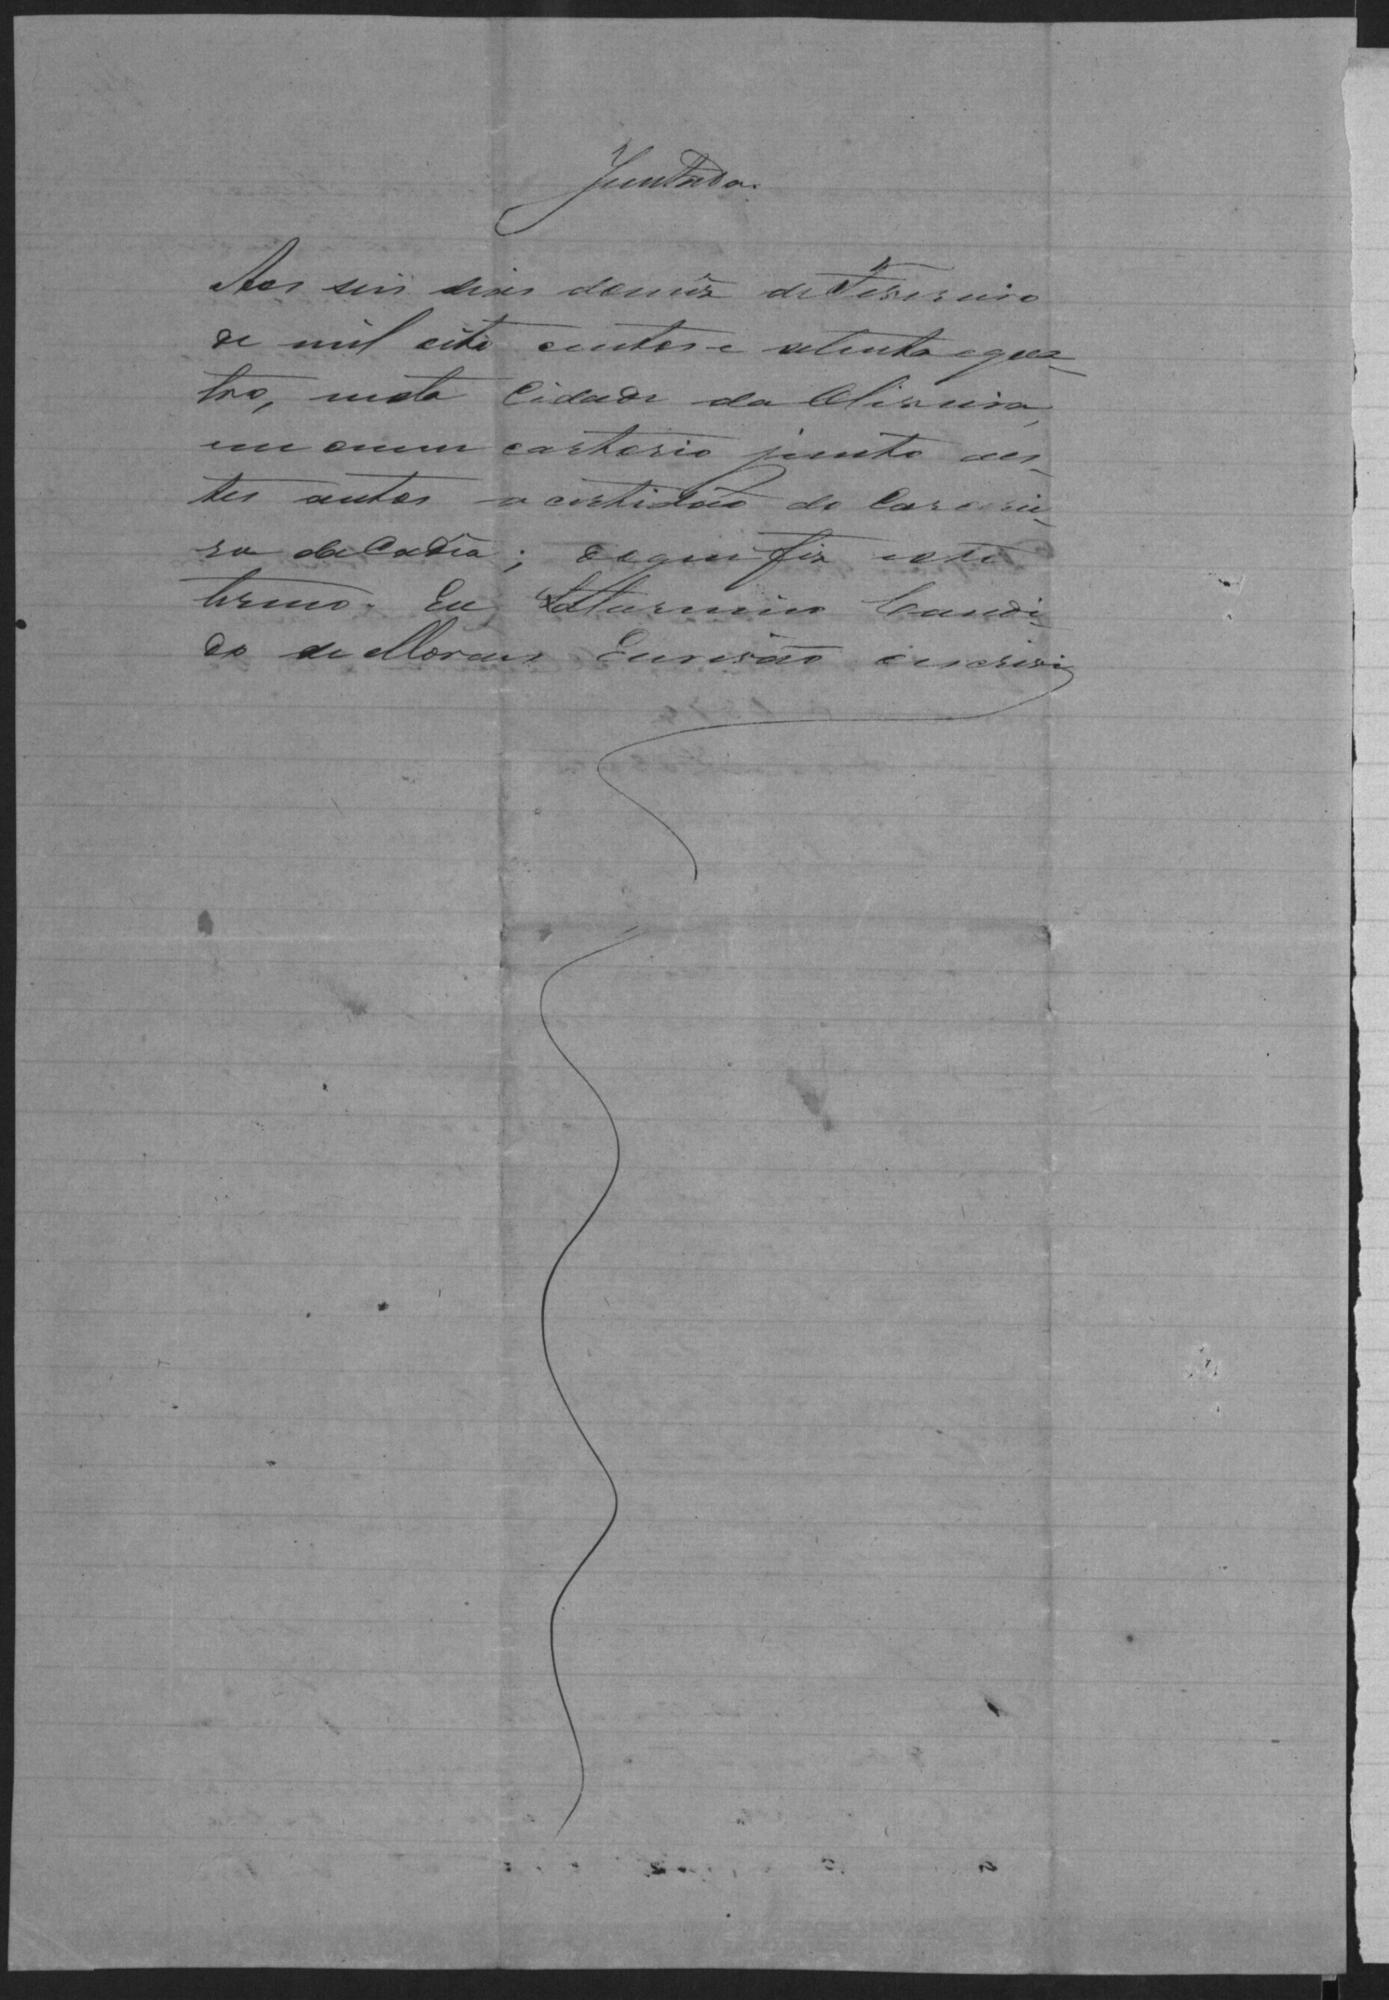 Juntada.
Aos seis dias domez de Fevereiro
de mil oito centos e setenta e qua-
tro, nesta Cidade da Oliveira,
em meu cartorio junto aes-
tes autos a certidão do Carcerei-
ro da Cadêa; do que fiz este
termo. Eu Saturnino Candi-
do de Moraes Escrivão escrevi